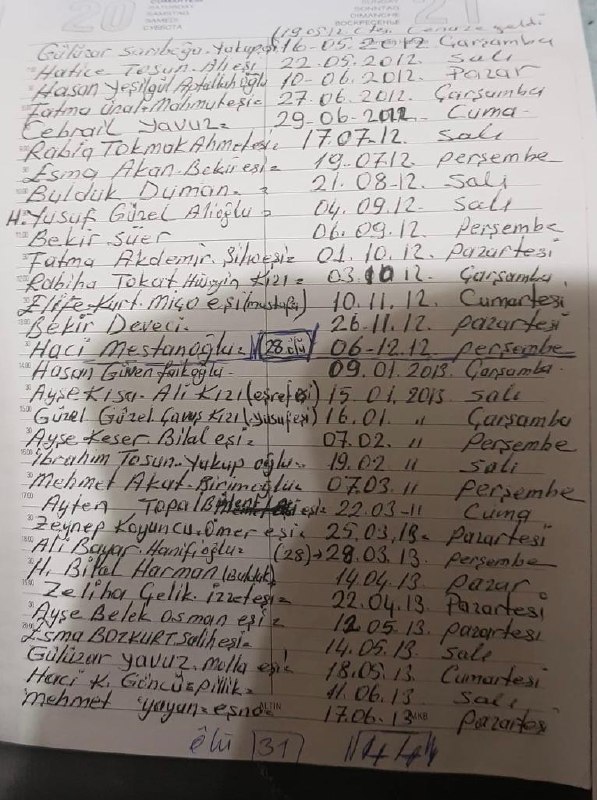 20 CUMARTESİ SATURDAY SAMSTAG SAMEDI СУББОТА
SUNDAY SONNTAG DIMANCHE ВОСКРЕСЕНЬЕ 21
(19.05.12 Cenaze geldi
Gülüzar Sarıboğa. Yakup 16-05-2012 Çarşamba
Hatice Tosun. Ali eşi 22.05.2012. Salı
Hasan Yeşilgül Aptullahoğlu 10-06.2012. Pazar
Fatma Ünal. Mahmuteşi= 27.06.2012. Çarşamba
Cebrail Yavuz= 29-06-2012 Cuma
Rabia Tokmak Ahmeteşi 17.07.12. Salı
Esma Akan. Bekireşi= 19.07.12 perşembe
Bulduk Duman= 21.08-12. Salı
H. Yusuf Güzel Alioğlu= 04.09.12. Salı
Bekir Süer 06.09.12. Perşembe
Fatma Akdemir. 01.10.12. Pazartesi
Rabiha Tokat. Hüseyin Kızı= 03.10 12. Çarşamba
Elife Kurt. Miço eşi (mustafa) 10.11.12. Cumartesi
Bekir Deveci= 26-11.12. pazartesi
Haci Mestanoğlu= 28 ölü 06-12.12 perşembe
Hasan Güven 09.01.2013. Çarşamba.
Ayşe Kısa. Ali Kızı (eşref eşi) 15.01.2013 Salı
Güzel Güzel Çavuş Kızı (yusuf eşi) 16.01. " Çarşamba
Ayşe Keser Bilal eşi= 07.02. " Perşembe
İbrahim Tosun. Yakup oğlu= 19.02 " Salı
Mehmet Akat. 07.03 " Perşembe
Ayten Topal eşi= 22.03-11 Cuma
Zeynep Koyuncu. Ömer eşi= 25.03.13. Pazartesi
Ali Bayar. Hanifioğlu= (28)→28.03.13. Perşembe
H. Bilal Harman (Bulduk) 14.04.13 Pazar
Zeliha Çelik. İzzeteşi= 22.04.13. Pazartesi
Ayşe Belek Osman eşi= 12 05.13. pazartesi
Esma BOZKURT Saliheşi= 14.05.13. Salı
Gülüzar Yavuz. Molla eşi= 18.05.13. Cumartesi
Haci K. 11.06.13. Salı
Mehmet 17.06.13 Pazartesi
ölü 31